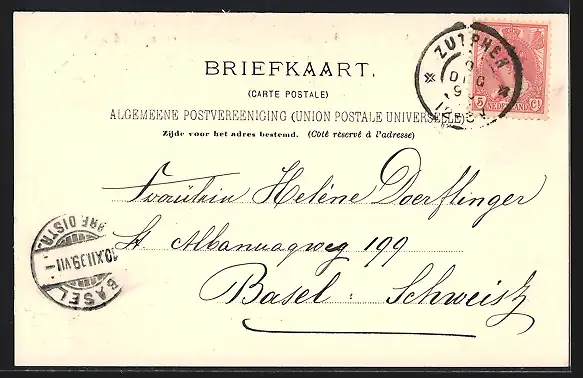 BRIEFKAART.
(CARTE POSTALE)
ALGEMEENE POSTVEREENIGING (UNION POSTALE UNIVERSELLE)
Zijde voor het adres bestemd. (Côté réservé à l'adresse)
ZUTPHEN
5 Ct
NEDERLAND
Fraülein Helène Doerflinger
St. Albanuagweg 199
Basel : Schweitz
BRF DISTR.
10.XII.99.VII
BASEL